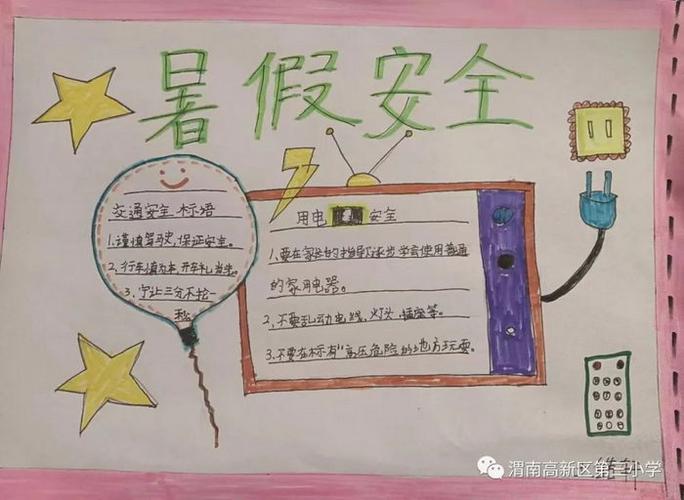 暑假安全
交通安全标语
1.谨慎驾驶,保证安全。
2.行车慎为本,开车礼当先。
3.宁让三分不抢一
秒
用电安全
1.要在家长的指导下逐步学会使用普通
的家用电器。
2、不要乱动电线,灯头,插座等。
3.不要在标有"高压危险的地方玩耍。
渭南高新区第三小学